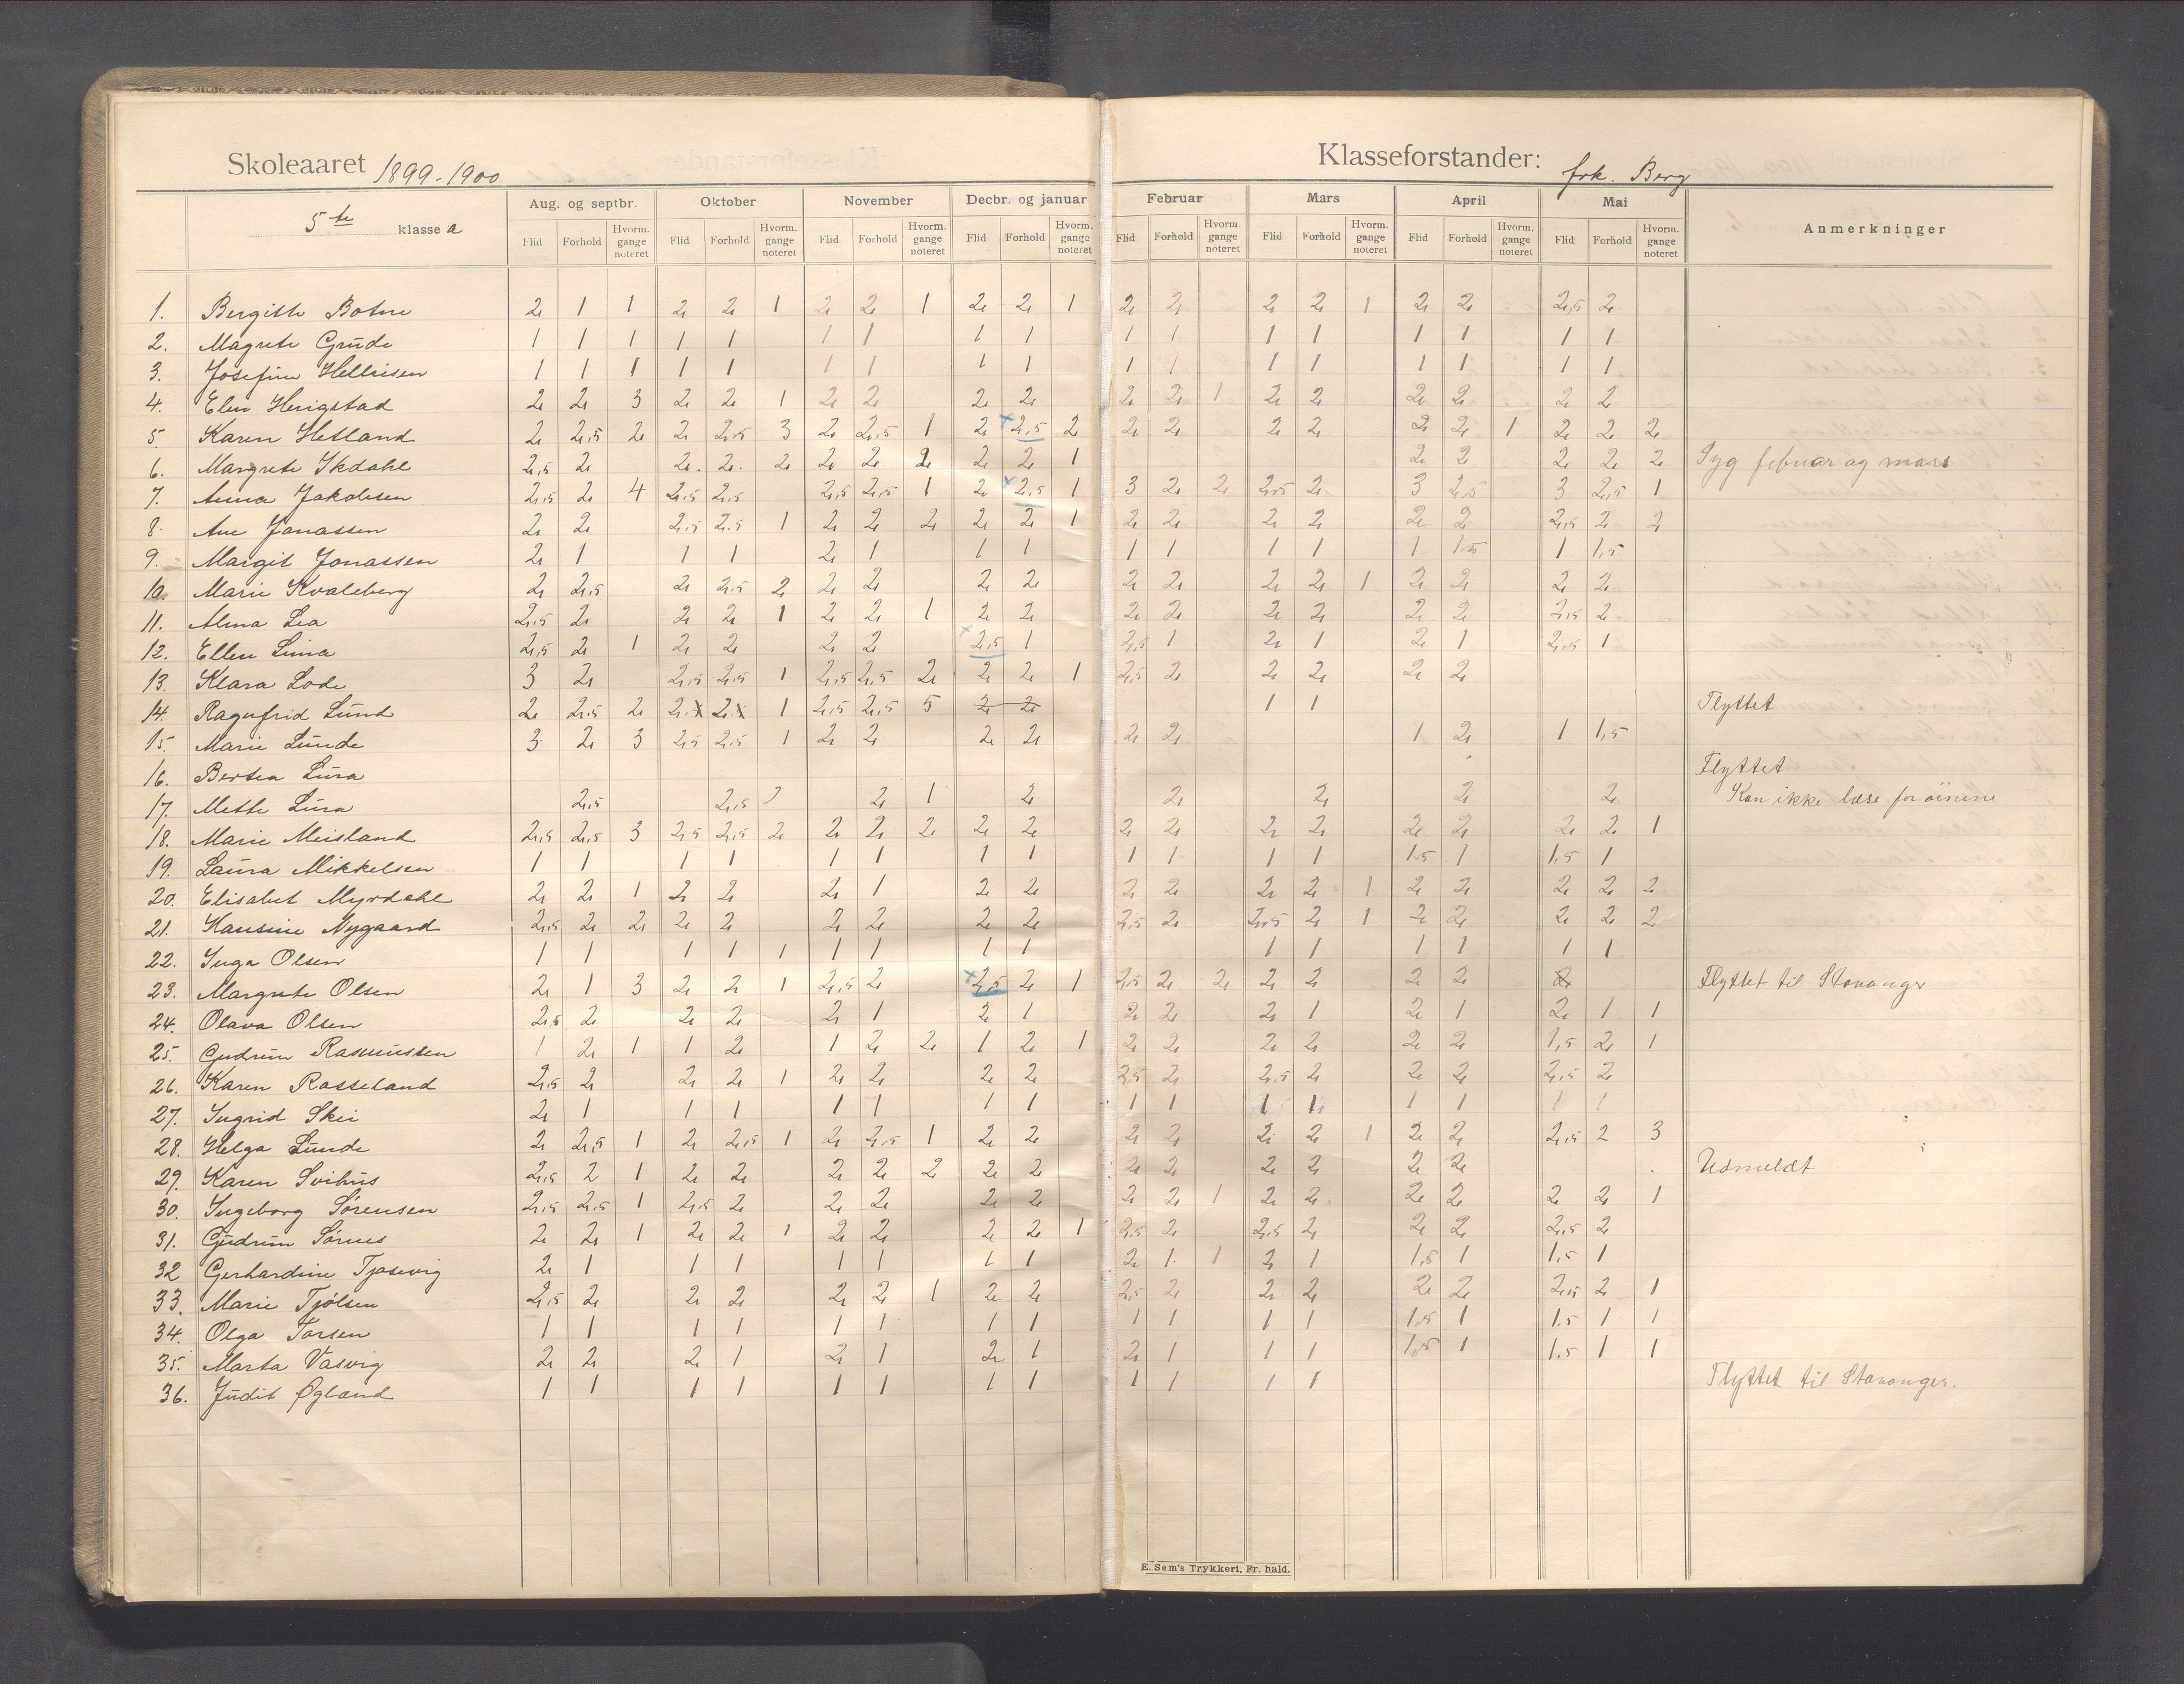 Skoleaaret 1899-1900 Klasseforstander: frk. Berg
5te klasse a
Aug. og septbr. Oktober November Decbr. og januar Februar Mars April Mai Anmerkninger
Flid Forhold Hvorm. gange noteret Flid Forhold Hvorm. gange noteret Flid Forhold Hvorm. gange noteret Flid Forhold Hvorm. gange noteret Flid Forhold Hvorm. gange noteret Flid Forhold Hvorm. gange noteret Flid Forhold Hvorm. gange noteret Flid Forhold Hvorm. gange noteret
1. Bergitte Botne 2 1 1 2 2 1 2 2 1 2 2 1 2 2 2 2 1 2 2 2,5 2
2. Magrete Grude 1 1 1 1 1 1 1 1 1 1 1 1 1 1 1 1 1
3. Josefine Hellisen 1 1 1 1 1 1 1 1 1 1 1 1 1 1 1 1 1
4. Elen Herigstad 2 2 3 2 2 1 2 2 2 2 2 2 1 2 2 2 2 2 2
5. Karen Hetland 2 2,5 2 2 2,5 3 2 2,5 1 2 2,5 2 2 2 2 2 2 2 1 2 2 2
6. Margrete Ikdahl 2,5 2 2 2 2 2 2 2 2 2 1 2 2 2 2 2 Syg februar og mars
7. Anna Jakobsen 2,5 2 4 2,5 2,5 2,5 2,5 1 2 2,5 1 3 2 2 2,5 2 3 2,5 3 2,5 1
8. Ane Jonassen 2 2 2,5 2,5 1 2 2 2 2 2 1 2 2 2 2 2 2 2,5 2 2
9. Margit Jonassen 2 1 1 1 2 1 1 1 1 1 1 1 1 1,5 1 1,5
10. Marie Kvaleberg 2 2,5 2 2,5 2 2 2 2 2 2 2 2 2 1 2 2 2 2
11. Alma Lea 2,5 2 2 2 1 2 2 1 2 2 2 2 2 2 2 2 2,5 2
12. Ellen Lima 2,5 2 1 2 2 2 2 2,5 1 2,5 1 2 1 2 1 2,5 1
13. Klara Lode 3 2 2,5 2,5 1 2,5 2,5 2 2 2 1 2,5 2 2 2 2 2
14. Ragnfrid Lund 2 2,5 2 2 2 1 2,5 2,5 5 2 2 1 1 Flyttet
15. Marie Lunde 3 2 3 2,5 2,5 1 2 2 2 2 2 2 1 2 1 1,5
16. Bertea Lura Flyttet
17. Mette Lura 2,5 2,5 2 1 2 2 2 2 2 Kan ikke læse for øinene
18. Marie Meisland 2,5 2,5 3 2,5 2,5 2 2 2 2 2 2 2 2 2 2 2 2 2 2 1
19. Laura Mikkelsen 1 1 1 1 1 1 1 1 1 1 1 1 1,5 1 1,5 1
20. Elisabet Myrdahl 2 2 1 2 2 2 1 2 2 2 2 2 2 1 2 2 2 2 2
21. Hansine Nygaard 2,5 2 2 2 2 2 2 2 2 2,5 2 2,5 2 1 2 2 2 2 2
22. Inga Olsen 1 1 1 1 1 1 1 1 1 1 1 1 1 1 1
23. Margrete Olsen 2 1 3 2 2 1 2,5 2 2,5 2 1 2,5 2 2 2 2 2 2 2 Flyttet til Stavanger
24. Olava Olsen 2,5 2 2 2 2 1 2 1 2 2 2 1 2 1 2 1 1
25. Gudrun Rasmussen 1 2 1 1 2 1 2 2 1 2 1 2 2 2 2 2 2 1,5 2 1
26. Karen Rosseland 2,5 2 2 2 1 2 2 2 2 2,5 2 2,5 2 2 2 2,5 2
27. Ingrid Skei 2 1 1 1 1 1 1 1 1 1 1 1 1 1 1 1
28. Helga Lunde 2 2,5 1 2 2,5 1 2 2,5 1 2 2 2 2 2 2 1 2 2 2,5 2 3
29. Karen Svihus 2,5 2 1 2 2 2 2 2 2 2 2 2 2 2 2 2 Udmeldt
30. Ingeborg Sørensen 2,5 2,5 1 2,5 2 2 2 2 2 2 2 1 2 2 2 2 2 2 1
31. Gudrun Sømes 2 2 1 2 2 1 2 2 2 2 1 2,5 2 2,5 2 2 2 2,5 2
32 Gerhardine Tjosevig 2 1 1 1 1 1 1 1 2 1 1 2 1 1,5 1 1,5 1
33. Marie Tjölsen 2,5 2 2 2 2 2 1 2 2 2,5 2 2 2 2 2 2,5 2 1
34. Olga Torsen 1 1 1 1 1 1 1 1 1 1 1 1 1,5 1 1,5 1 1
35. Marta Vasvig 2 2 2 1 2 1 2 1 2 1 1 1 1,5 1 1,5 1 1
36. Judit Øgland 1 1 1 1 1 1 1 1 1 1 1 1 Flyttet til Stavanger.
E. Sem's Trykkeri, Fr. hald.